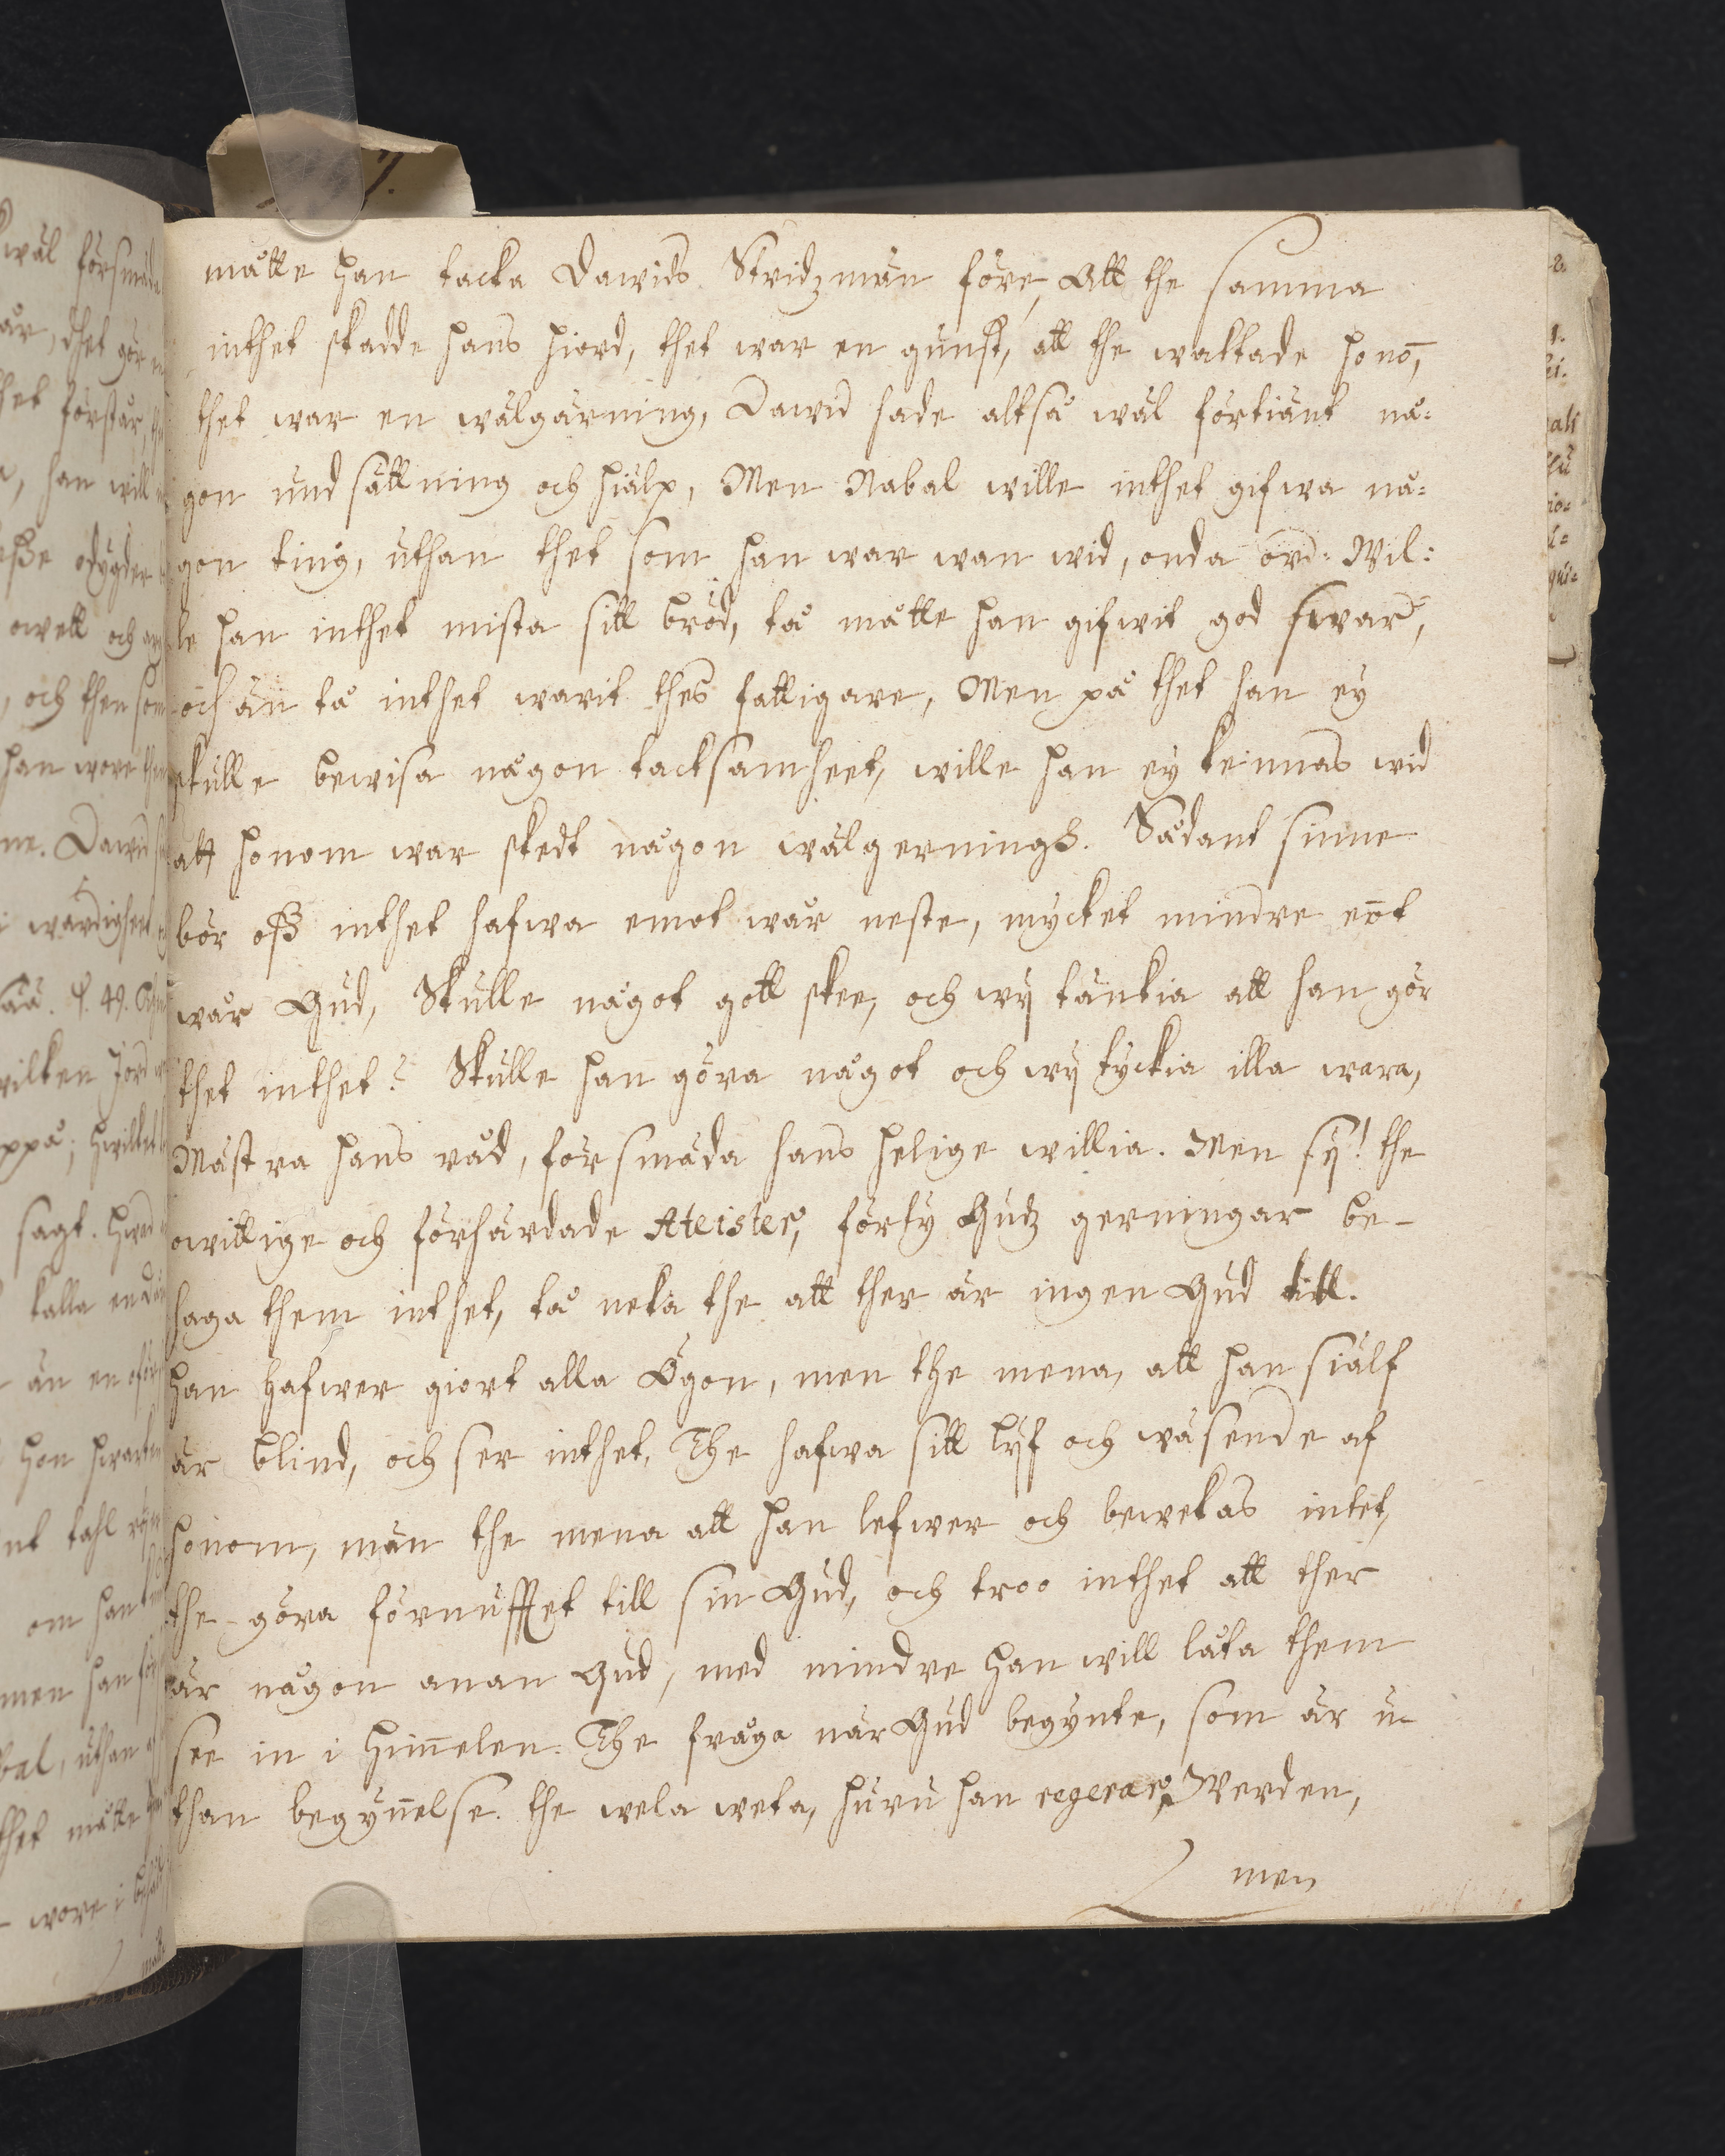 måtte han tacka Dawids Stridzmän före, Att the samma
inthet skadde hans hiord, thet war en gunst, att the waktade hono̅,
thet war en wälgärning, Dawid hade altså wäl förtiänt nå=
gon undsättning och hiälp, Men Nabal wille inthet gifwa nå=
gon ting, uthan thet som han war wan wid, onda ord. Wil=
le han inthet mista sitt bröd, tå måtte han gifwit god swar,
och än tå inthet warit thes fattigare, Men på thet han ey
skulle bewisa någon tacksamheet, wille han ey keinnas wid
att honom war skedt någon wälgerningh. Sådant sinne
bör oss inthet hafwa emot wår neste, mycket mindre eõt
wår Gud, Skulle något gott skee, och wij tänkia att han gör
thet inthet? Skulle han göra något och wij tyckia illa wara,
Mästra hans råd, försmäda hans helige willia. Men sij! the
owittige och förhärdade Ateister, förty Gudz gerningar be-
haga them inthet, tå neka the att ther är ingen Gud till.
Han hafwer giort alla Ögon, men the mena, att han siälf
är blind, och ser inthet, The hafwa sitt lijf och wäsende af
honom, män the mena att han lefwer och bewekas intet,
the göra förnufftet till sin Gud, och troo inthet att ther
är någon anan Gud, med mindre han will låta them
see in i himelen. The fråga när Gud begynte, som är u-
than begynelse. the wela weta, huru han regerar Werden,
men